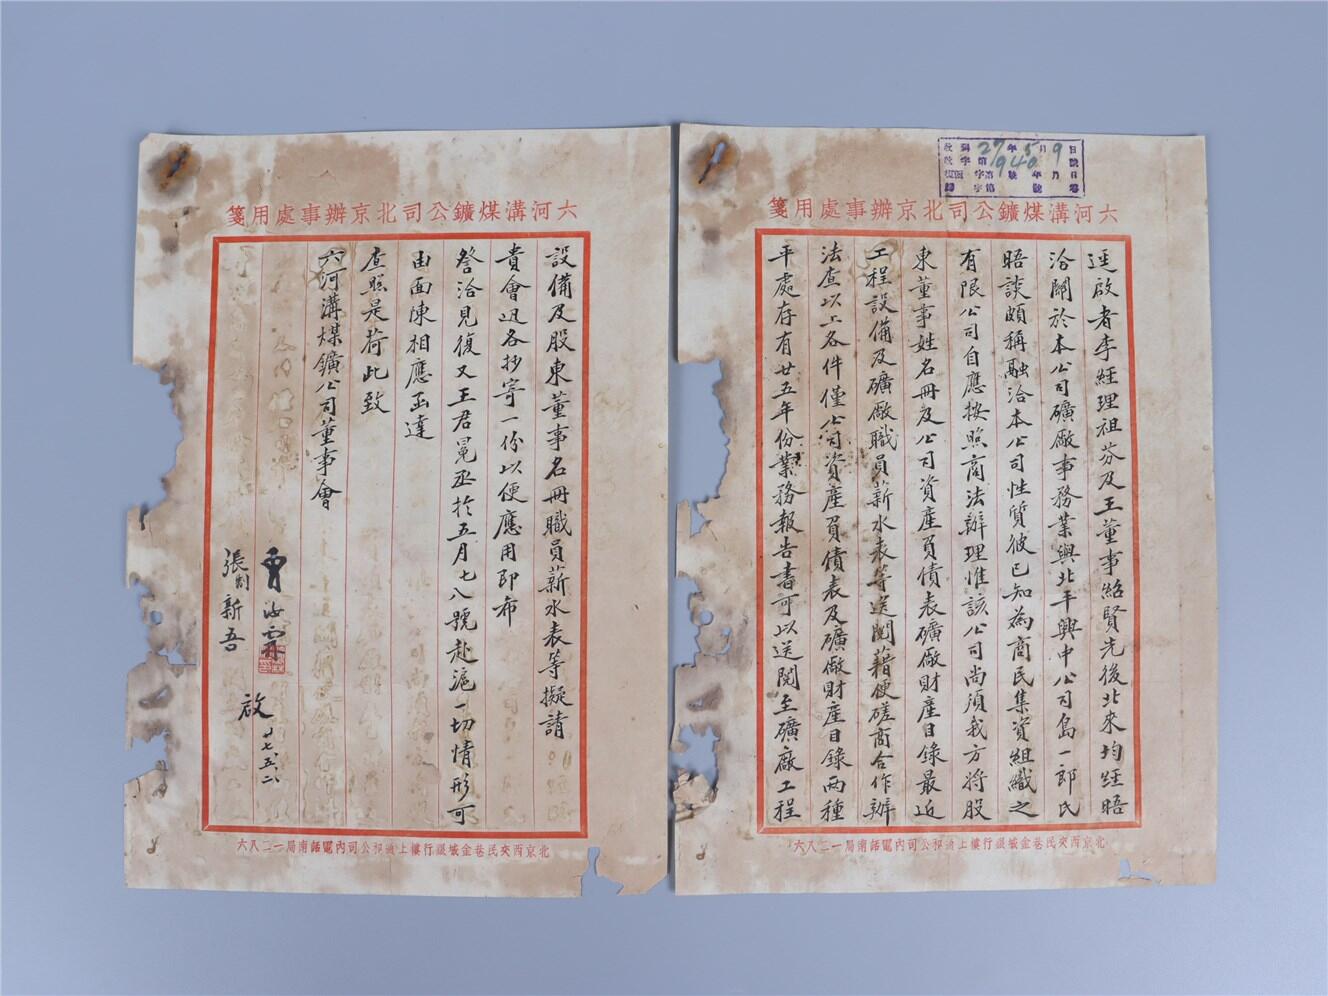 六河溝煤鑛公司北京辦事處用箋
27年5月9日
940
逕啟者李經理祖芬及王董事紹賢先後北來均經晤
洽關於本公司礦廠事務業與北平興中公司島一郎氏
晤談頗稱融洽本公司性質彼已知為商民集資組織之
有限公司自應按照商法辦理惟該公司尚須我方將股
東董事姓名冊及公司資產負債表礦廠財產目錄最近
工程設備及礦廠職員薪水表等送閱藉便磋商合作辦
法查以上各件僅公司資產負債表及礦廠財產目錄兩種
平處存有廿五年份業務報告書可以送閱至礦廠工程
北京西交民巷金城銀行樓上通和公司內電話南局一二八六
六河溝煤鑛公司北京辦事處用箋
設備及股東董事名冊職員薪水表等擬請
貴會迅各抄寄一份以便應用即希
詧洽見復又王君冕丞於五月七八號赴滬一切情形可
由面陳相應函達
查照是荷此致
六河溝煤鑛公司董事會
賈汝霖
張新吾
啟
廿七、五、二、
北京西交民巷金城銀行樓上通和公司內電話南局一二八六